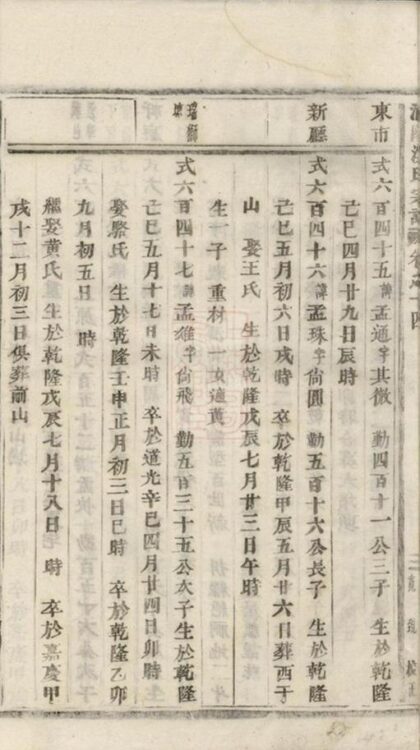 東市
式六百四十五諱孟通字其徵　勤四百十一公三子　生於乾隆
己巳四月廿九日辰時
新廳
式六百四十六諱孟珠字尙圓　勤五百十六公長子　生於乾隆
己巳五月初六日戌時　卒於乾隆甲辰五月廿六日葬西于
山　娶王氏　生於乾隆戊辰七月廿三日午時
生一子　重材　一女適黃
瑞獅
式六百四十七諱孟雄字尙飛　勤五百三十五公次子生於乾隆
己巳五月十七日未時　卒於道光辛巳四月廿四日卯時
娶駱氏　生於乾隆壬申正月初三日巳時　卒於乾隆乙卯
九月初五日　時
繼娶黃氏　生於乾隆戊辰七月十八日　時　卒於嘉慶甲
戌十二月初三日俱葬前山